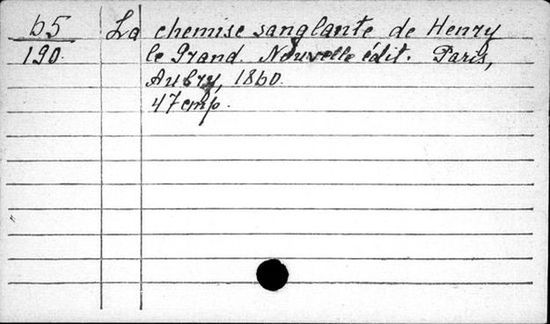 65 La chemise sanglante de Henry
190. le Grand. Nouvelle édit. Paris,
Aubry, 1860.
47 cmp.